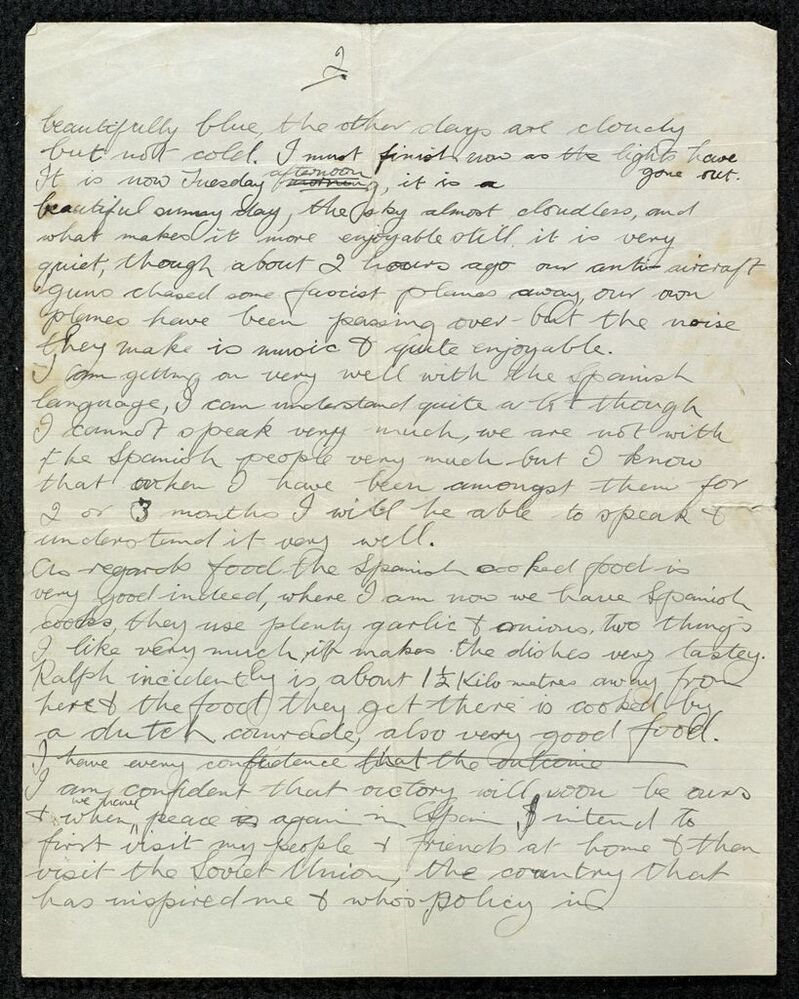 2
beautifully blue, the other days are cloudy
but not cold. I must finish now as the lights have
gone out.
It is now Tuesday afternoon morning, it is a
beautiful sunny day, the sky almost cloudless, and
what makes it more enjoyable still, it is very
quiet, though about 2 hours ago our anti-aircraft
guns chased some fascist planes away, our own
planes have been passing over but the noise
they make is music & quite enjoyable.
I am getting on very well with the Spanish
language, I can understand quite a lot though
I cannot speak very much, we are not with
the Spanish people very much but I know
that when I have been amongst them for
2 or 3 months I will be able to speak &
understand it very well.
As regards food the Spanish cooked food is
very good indeed, where I am now we have Spanish
cooks, they use plenty garlic & onions, two things
I like very much, it makes the dishes very tastey.
Ralph incidently is about 1½ Kilo metres away from
here & the food they get there is cooked by
a dutch comrade, also very good food.
I have every confidence that the outcome
I am confident that victory will soon be ours
& when we have peace is again in Spain, I intend to
first visit my people & friends at home & then
visit the Soviet Union, the country that
has inspired me & who's policy is